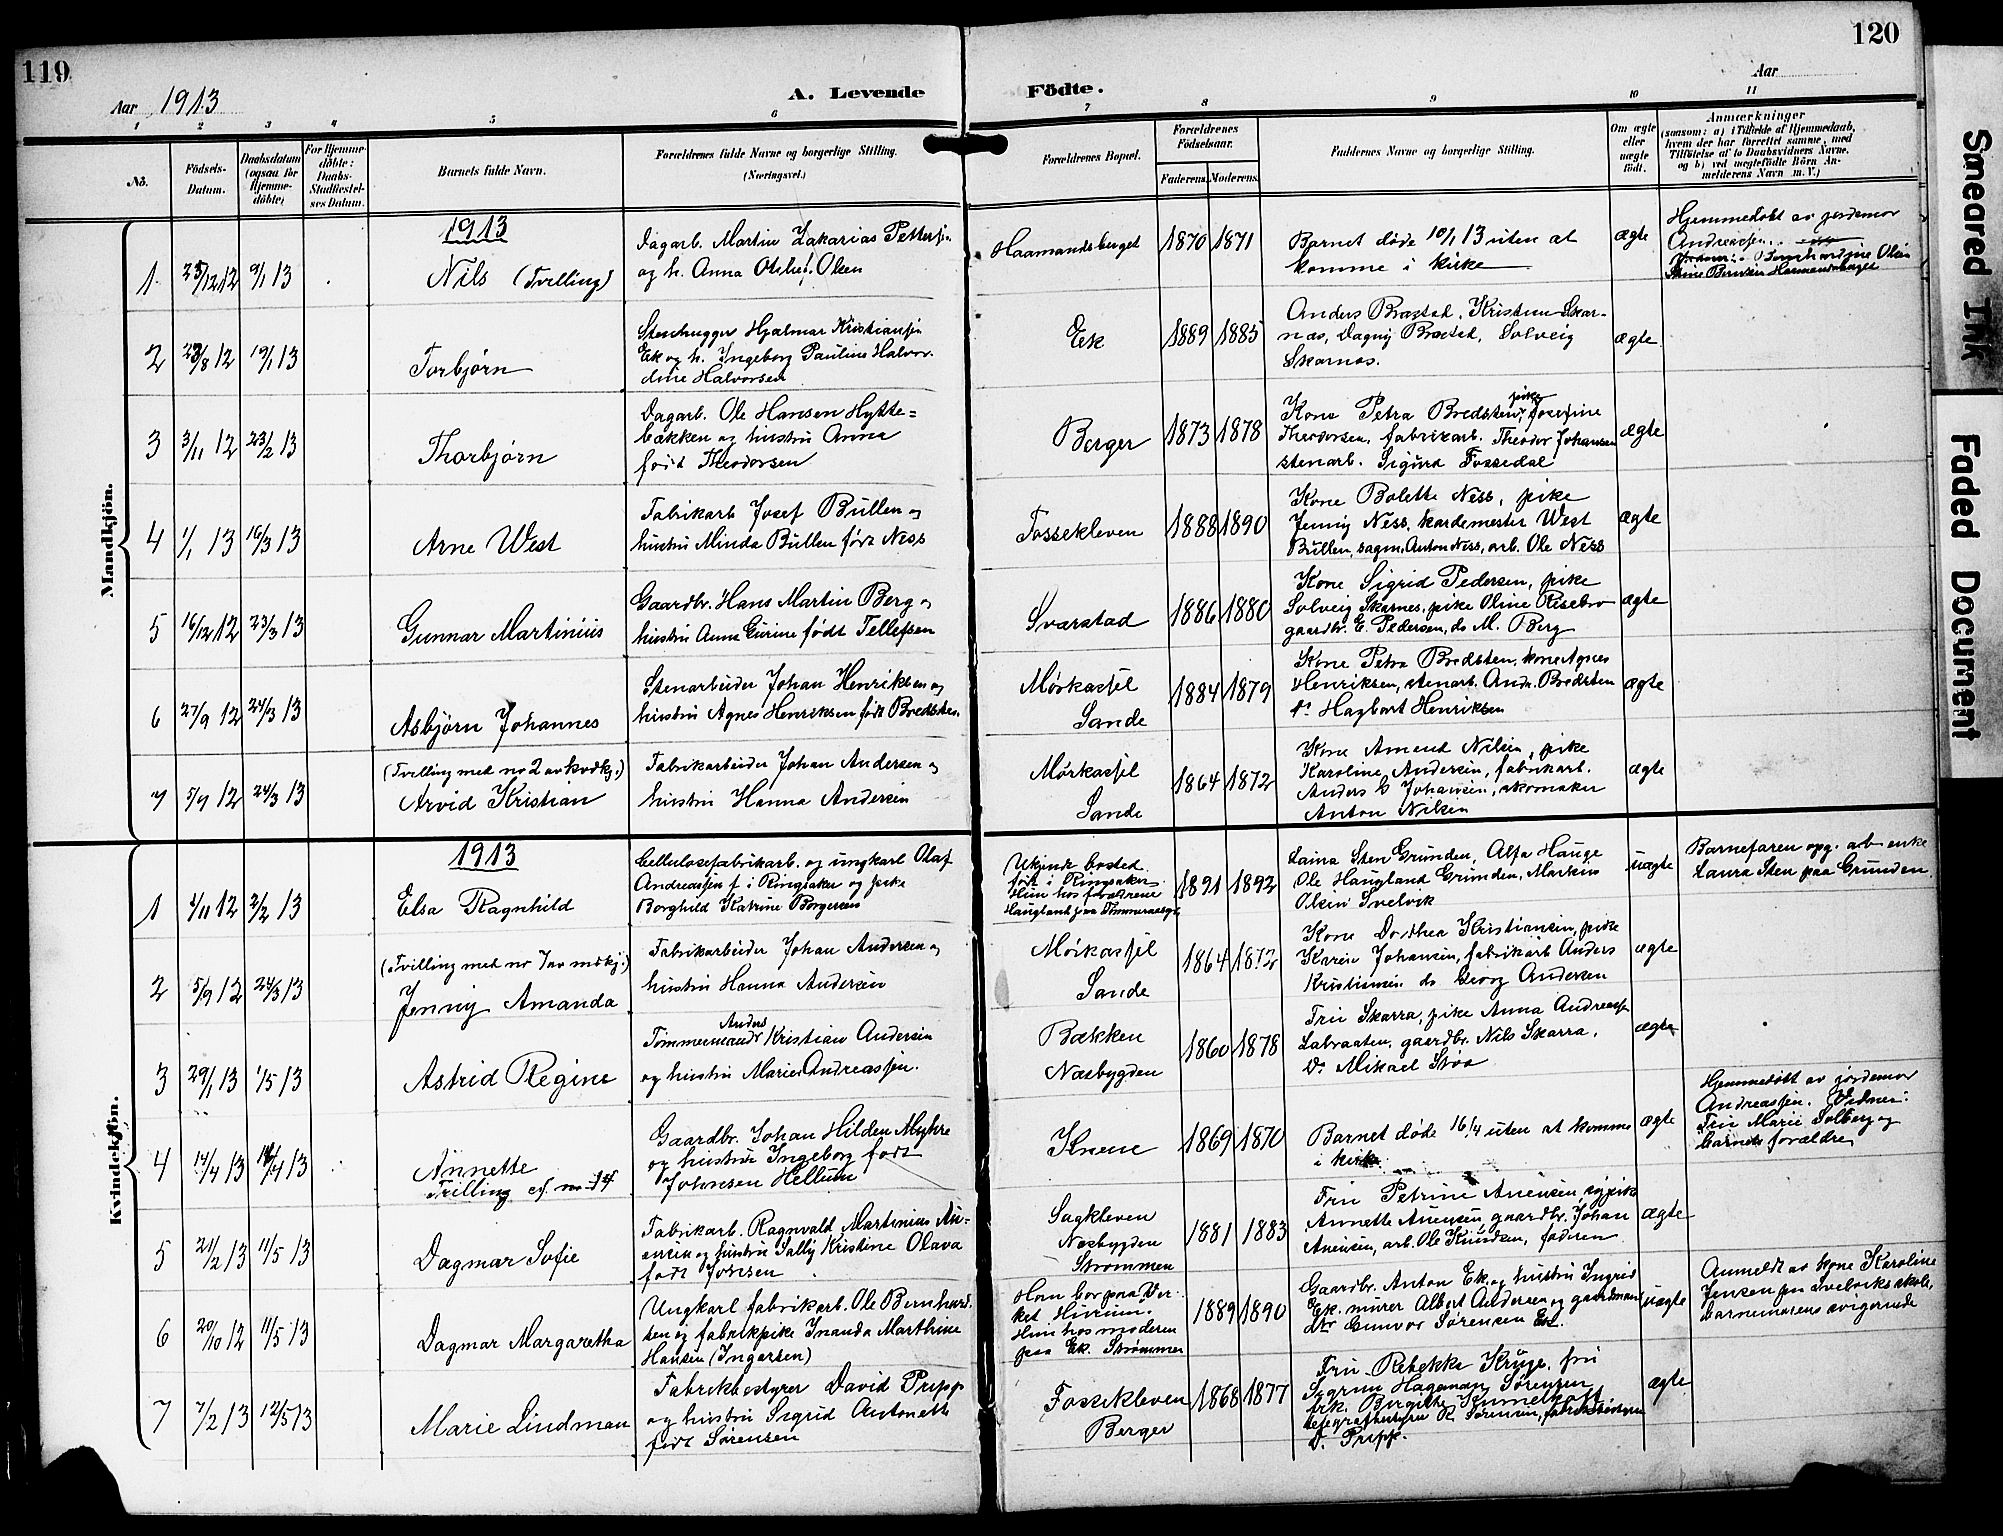 119
120
Aar 1913
A. Levende Födte.
Aar
1 2 3 4 5 6 7 8 9 10 11
Nö.
Födsels-
Datum.
Daabsdatum
(ogsaa for
Hjemme-
döbte)
For Hjemme-
döbte:
Daabs-
Stadfæstel-
ses Datum.
Barnets fulde Navn.
Forældrenes fulde Navne og borgerlige Stilling.
(Næringsvei.)
Forældrenes Bopæl.
Forældrenes
Födselsaar.
Faderens. Moderens.
Faddernes Navne og borgerlige Stilling.
Om ægte
eller
uægte
födt.
Anmærkninger
(saasom: a) i Tilfælde af Hjemmedaab,
hvem der har forrettet samme, med
Tilföielse af to Daabsvidners Navne,
og b) ved uægtefödte Börn An-
melderens Navn m. V.)
Smeared Ink
Faded Document
Mandkjön.
1913
1 25/12 12 9/1 13
Nils (Tvilling)
Dagarb. Martin Zakarias Petters.
og h. Anna Olsen
Haamandsberget
1870 1871
Barnet døde 10/1 13 uten at
komme i kirke
ægte
Hjemmedøbt av jordemor
Andreassen.
2 23/8 12 19/1 13
Torbjørn
Stenhugger Hjalmar Kristiansen
Ek og h. Ingeborg Pauline Halvor-
dine Halvorsen
Ek
1889 1885
Anders Brastad, Kristian Skar-
næs, Dagny Brastad, Solveig
Skarnæs.
ægte
3 3/11 12 23/2 13
Thorbjørn
Dagarb. Ole Hansen Hytte=
bækken og hustru Anna
født Theodorsen
Berger
1873 1878
Kone Petra Bredsten, pike Josefine
Theodorsen, fabrikarb. Theodor Johansen
stenarb. Sigurd Fossedal
ægte
4 1/1 13 16/3 13
Arne West
Fabrikarb Josef Bullen og
hustru Minda Bullen født Ness
Fossekleven
1888 1890
Kone Bolette Ness, pike
Jenny Ness, kardemester West
Bullen, sagm. Anton Ness, arb. Ole Ness
ægte
5 16/12 12 23/3 13
Gunnar Martinius
Gaardbr. Hans Martin Berg og
hustru Anna Gurine født Tellefsen
Svarstad
1886 1880
Kone Sigrid Pedersen, pike
Solveig Skarnes, pike Oline Risebro
gaardbr. E. Pedersen, do M. Berg
ægte
6 27/9 12 24/3 13
Asbjørn Johannes
Stenarbeider Johan Henriksen og
hustru Agnes Henriksen født Bredsten.
Mørkassjel
Sande
1884 1879
Kone Petra Bredsten, kone Agnes
Henriksen, stenarb. Andr. Bredsten
do Hagbart Henriksen
ægte
7 5/9 12 24/3 13
(Tvilling med no 2 av kvdkj.)
Arvid Kristian
Fabrikarbeider Johan Andersen og
hustru Hanna Andersen
Mørkassjel
Sande
1864 1872
Kone Amend Nilsen, pike
Karoline Andersen, fabrikarb.
Anders G Johansen, skomaker
Anton Nilsen
ægte
Kvindekjön.
1913
1 1/11 12 2/2 13
Elsa Ragnhild
Cellulosefabrikarb. og ungkarl Olaf
Andreassen f i Ringsaker og pike
Borghild Katrine Borgersen
Ukjendt bosted
født i Ringsaker
Hun hos forældrene
Haugland paa
1891 1892
Laura Sten Grunden, Alfa Hauge
Ole Haugland Grunden, Markus
Olsen Svelvik
uægte
Barnefaren opg. av enke
Laura Sten paa Grunden.
2 5/9 12 24/3 13
(Tvilling med no 7 av mdkj.)
Jenny Amanda
Fabrikarbeider Johan Andersen og
hustru Hanna Andersen
Mørkassjel
Sande
1864 1872
Kone Dorthea Kristiansen, pike
Karen Johansen, fabrikarb Anders
Kristiansen do Georg Andersen
ægte
3 29/1 13 1/5 13
Astrid Regine
Anders
Tømmermand Kristian Andersen
og hustru Marie Andreassen.
Bækken
Næsbygden
1860 1878
Fru Skarra, pike Anna Andreass
Labraaten, gaardbr. Nils Skarra,
Do Mikael Stöa
ægte
4 14/4 13 14/4 13
Annette
Trilling
Gaardbr. Johan Hilden Myhre
og hustru Ingeborg født
Johnsen Hellum
Knem
1869 1870
Barnet døde 16/4 uten at komme
i kirke
ægte
Hjemmedøbt av jordemor
Andreassen. Vidner:
Fru Marie Solberg og
barnets forældre
5 21/2 13 11/5 13
Dagmar Sofie
Fabrikarb. Ragnvald Martinius An-
ensen og hustru Sally Kristine Olava
født Jensen
Sagkleven
Næsbygden
Strømmen
1881 1883
Fru Petrine Anensen, sypike
Annette Anensen, gaardbr. Johan
Anensen, arb. Ole Knudsen, faderen
ægte
6 20/10 12 11/5 13
Dagmar Margaretha
Ungkarl fabrikarb. Ole Bernhard-
sen og fabrikpike Inanda Marthine
Hansen (Ingarsen)
Han bor paa Ver-
ket Hurum.
Hun hos moderen
paa Ek. Strømmen
1889 1890
Gaardbr. Anton Ek og hustru Ingrid
Ek, murer Albert Andersen og gaardmand
dtr Gunvor Sørensen Ek.
uægte
Anmeldt av kone Karoline
Jensen paa Svelviks skole,
barnemorens svigerinde
7 7/2 13 12/5 13
Marie Lindman
Fabrikbestyrer David Pripp
og hustru Sigrid Antonette
født Sørensen
Fossekleven
Berger
1868 1877
Fru Rebekka Kruge, fru
Sigrun Hageman Sørensen
frk. Birgitte
telegrafbestyrer R. Sørensen, fabrikbestyrer
D. Pripp.
ægte